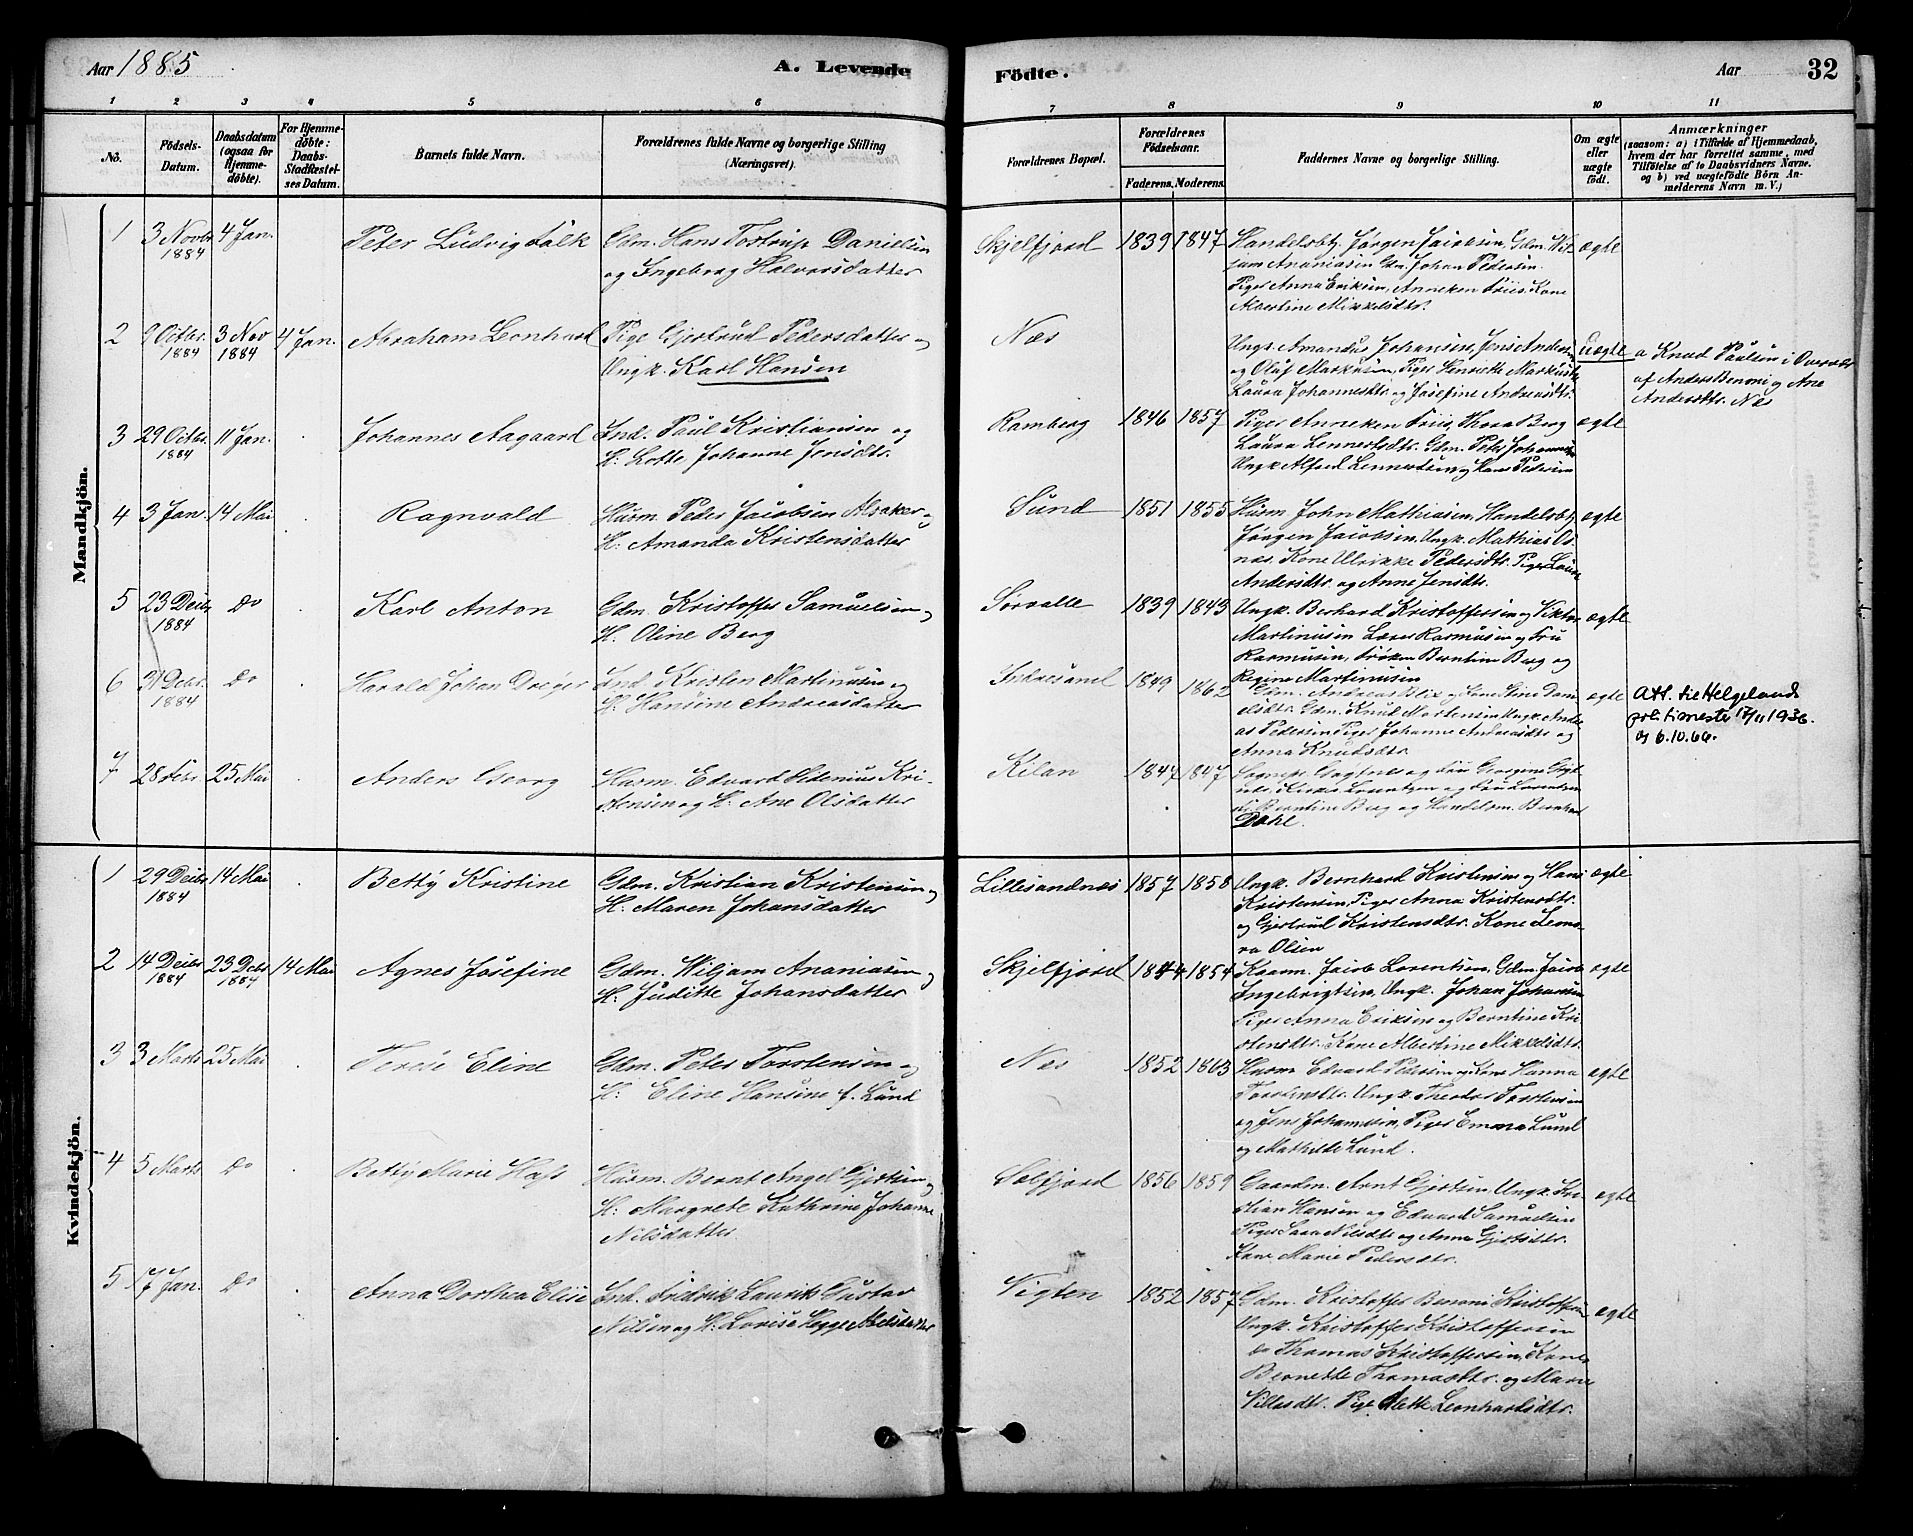 Aar 1885
A. Levende
Födte.
Aar
32
1 2 3 4 5 6 7 8 9 10 11
No.
Födsels-
Datum.
Daabsdatum
(ogsaa for
Hjemme-
döbte).
For Hjemme-
döbte:
Daabs-
Stadfæstel-
ses Datum.
Barnets fulde Navn.
Forældrenes fulde Navne og borgerlige Stilling
(Næringsvei).
Forældrenes Bopæl.
Forældrenes
Födselsaar.
Faderens. Moderens.
Faddernes Navne og borgerlige Stilling.
Om ægte
eller
uægte
födt.
Anmærkninger
(saasom: a) i Tilfælde af Hjemmedaab,
hvem der har forrettet samme, med
Tilföielse af to Daabsvidners Navne.
og b) ved uægtefödte Börn An-
melderens Navn m. V.)
Mandkjön.
1
3 Novbr
1884
4 Jan.
Peter Ludvig Falk
Gdm. Hans Tostrup Danielsen
og Ingeborg Halvorsdatter
Skjelfjord
1839 1847
Handelsbtj. Jørgen Jacobsen, Gdm. Wil-
jam Ananiasen Gdm. Johan Pedersen.
Piger Anna Eriksen, Anneken Friis. Kone
Albertine Mikkelsdtr.
ægte
2
9 Octbr.
1884
3 Nov
1884
4 Jan.
Abraham Leonhard
Pige Gjertrud Pedersdatter og
Ungk. Karl Hansen
Næs
Ungk. Amandus Johansen, Jens Anders
og Oluf Markusen, Piger Henriette Markusdtr
Laura Johannesdtr og Josefine Andreasdtr.
uægte
a Knud Paulsen i
af Anders Benoni og Ane
Andersdtr. Næs
3
29 Octbr.
1884
11 Jan.
Johannes Aagaard
Ind. Paul Kristiansen og
H. Lotte Johanne Jensdtr.
Ramberg
1846 1857
Piger Anneken Friis, Thora Berg
Laura Lennertsdtr. Gdm. Peter Johannes
Ungk Alfred Lennertsen og Hans Pedersen
ægte
4
3 Jan.
14 Mai
Ragnvald
Husm Peder Jacobsen Alsaker og
H. Amanda Kristensdatter
Sund
1851 1855
Husm John Mathiasen, Handelsbtj
Jørgen Jacobsen, Ungk. Mathias Os-
næs. Kone Ulrikke Pedersdtr. Piger Laura
Andersdtr. og Anne Jensdtr.
ægte
5
23 Decbr
1884
Do
Karl Anton
Gdm. Kristoffer Samuelsen og
H. Oline Berg
Sørvalle
1839 1843
Ungk. Berhard Kristoffersen og Viktor
Martinusen Lærer Rasmusen og Fru
Rasmusen, Frøken Berntine Berg og
Regine Martinusen
ægte
6
31 Decbr.
1884
Do
Harald Johan Dreyer
Ind. Kristen Martinusen og
H. Hansine Andreasdatter
1849 1862
Gdm. Andreas Blix og Kone Stine Dani-
elsdtr. Gdm. Knud Mortensen Ungk. Andre-
as Pedersen Piger Johanne Andreasdtr og
Anna Knudsdtr.
ægte
Att. til Helgeland
politimester 17/11 1936.
og 6.10.66.
7
28 Febr.
25 Mai
Anders Georg
Husm. Edvard Hdenius Kri-
stensen og H. Ane Olsdatter
Kilan
1847 1847
Berntine Berg og Handelsm. Bernhar
Dahl.
Kvindekjön.
1
29 Decbr
1884
14 Mai
Betty Kristine
Gdm. Kristian Kristensen og
H. Maren Johansdatter
Lillesandnæs
1857 1858
Ungk. Bernhard Kristensen og Hans
Kristensen, Piger Anna Kristensdtr.
og Gjertrud Kristensdtr. Kone Leono-
ra Olsen
ægte
2
14 Decbr
1884
23 Decbr
1884
14 Mai
Agnes Josefine
Gdm. Wiljam Ananiasen og
H. Juditte Johansdatter
Skjelfjord
1844 1854
Kaarm. Jacob Lorentsen, Gdm. Jacob
Ingebrigtsen, Ungk. Johan Johansen
Piger Anna Eriksen og Berntine Kri-
stensdtr. Kone Albertine Mikkelsdtr.
ægte
3
3 Marts
25 Mai
Terese Eline
Gdm. Peter Torstensen og
H. Eline Hansine f. Lund
Næs
1852 1863
Husm Edvard Pedersen og Kone Hanna
Torstensdtr. Ungk. Theodor Torstensen
og Jens Johannesen, Piger Emma Lund
og Mathilde Lund.
ægte
4
5 Marts
Do
Betty Marie Hass
Husm. Bernt Angel Gjertsen og
H. Margrete Kathrine Johanne
Nilsdatter
Selfjord
1856 1859
Gaardm. Arnt Gjertsen Ungk. Kri-
stian Hansen og Edvard Samuelsen
Piger Sara Nilsdtr og Anna Gjertsdtr.
Kone Marie Pedersdtr.
ægte
5
17 Jan.
Do
Anna Dorthea Elise
Ind. Fredrik Laurits Gustav
Nilsen og H. Lovise Hegge Nilsdatter
Vigten
1852 1857
Gdm. Kristoffer Benoni Kristoffersen
Ungk. Kristoffer Kristoffersen
Do Thomas Kristoffersen, Kone
Bernette Thomasdtr. og Maren
Nilsdtr. Pige Olette Leonhartsdtr.
ægte